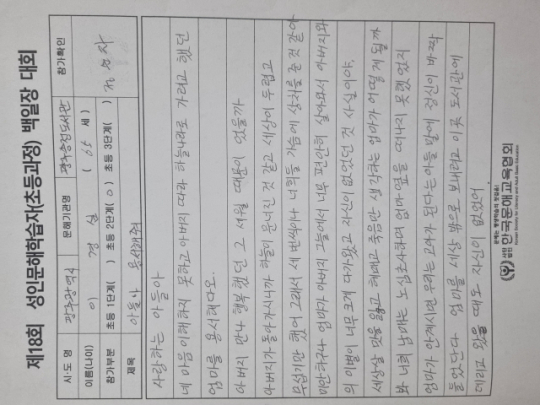 제18회 성인문해학습자(초등과정) 백일장 대회
시·도 명 광주광역시 문해기관명 광주송정도서관 참가확인
이름(나이) 이 경실 (65 세)
참가부문 초등 1단계( ) 초등 2단계(○) 초등 3단계( )
제목 아들아 용서해줘
사랑하는 아들아
네 마음 이해하지 못하고 아버지 따라 하늘나라로 가려고 했던
엄마를 용서해다오.
아버지 만나 행복했던 그 세월 때문이었을까
아버지가 돌아가시니까 하늘이 무너진 것 같고 세상이 두렵고
무섭기만 했어 그래서 세 번씩이나 너희들 가슴에 상처를 준 것 같아
미안하구나 엄마가 아버지 그늘에서 너무 편안히 살아와서 아버지와
의 이별이 너무 크게 다가왔고 자신이 없었던 것 사실이야.
세상살 맛을 잃고 헤매고 죽음만 생각하는 엄마가 어떻게 될까
봐 너희 남매는 노심초사하며 엄마 옆을 떠나지 못했었지
엄마가 안계시면 우리는 고아가 된다는 아들 말에 정신이 바짝
들었단다 엄마를 세상 밖으로 보내려고 이곳 도서관에
데리고 왔을 때도 자신이 없었어
한국문해교육협회